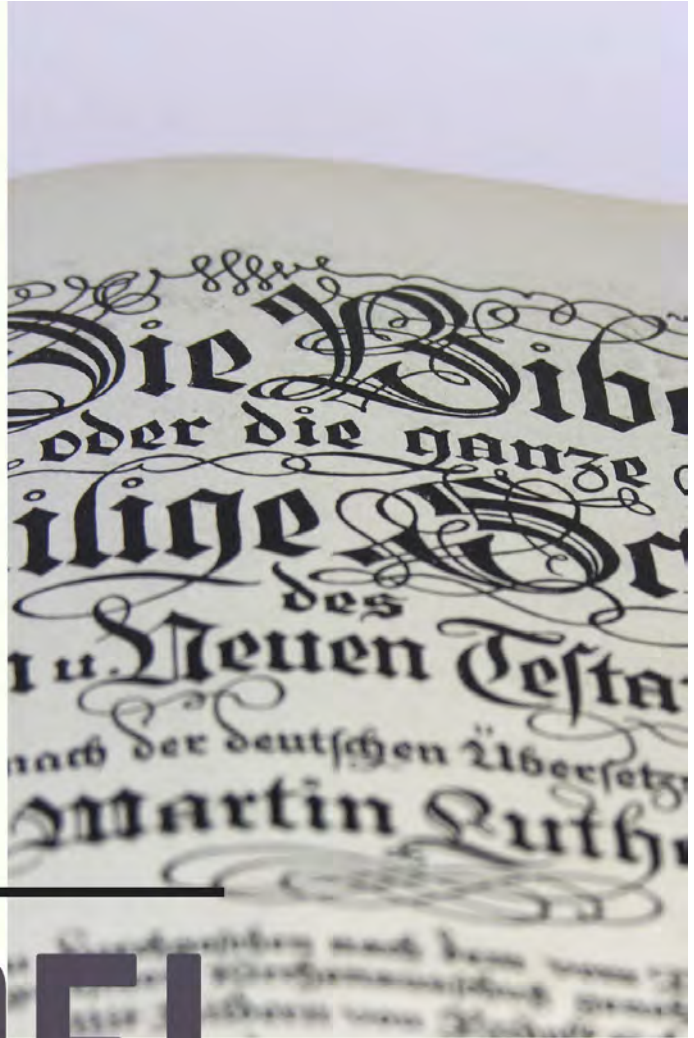 Die Bibe
oder die ganze
ilige Sc
des
n u. Neuen Testa
nach der deutschen Übersetz
Martin Luthe
nach dem vom